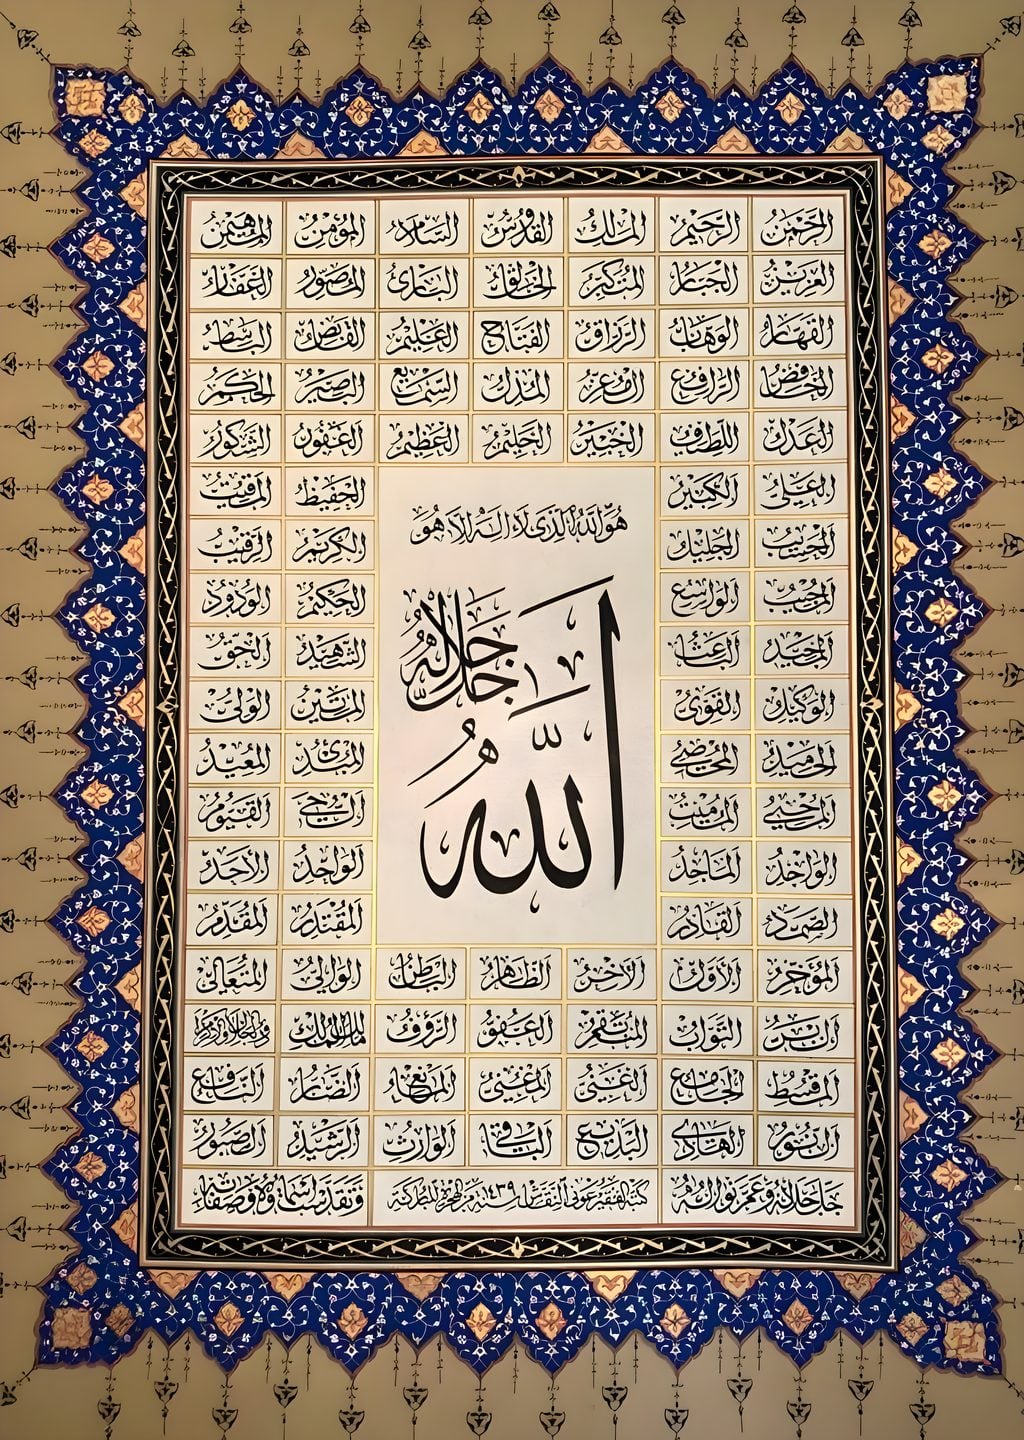 الرحمن الرحيم الملك القدوس السلام المؤمن المهيمن
العزيز الجبار المتكبر الخالق البارئ المصور الغفار
القهار الوهاب الرزاق الفتاح العليم القابض الباسط
الخافض الرافع المعز المذل السميع البصير الحكم
العدل اللطيف الخبير الحليم العظيم الغفور الشكور
العلي الكبير الحفيظ المقيت
هو الله الذي لا اله الا هو
الحسيب الجليل الكريم الرقيب
المجيب الواسع الحكيم الودود
المجيد الباعث الشهيد الحق
جل جلاله
الوكيل القوي المتين الولي
الحميد المحصي المبدئ المعيد
الله
المحيي المميت الحي القيوم
الواجد الماجد الواحد الأحد
الصمد القادر المقتدر المقدم
المؤخر الأول الآخر الظاهر الباطن الوالي المتعالي
البر التواب المنتقم العفو الرؤف مالك الملك ذو الجلال والإكرام
المقسط الجامع الغني المغني المانع الضار النافع
النور الهادي البديع الباقي الوارث الرشيد الصبور
جل جلاله وعم نواله كتبه الفقير عوني النقاش سنة ١٤٣٩ من الهجرة المباركة وتقدست اسماؤه وصفاته